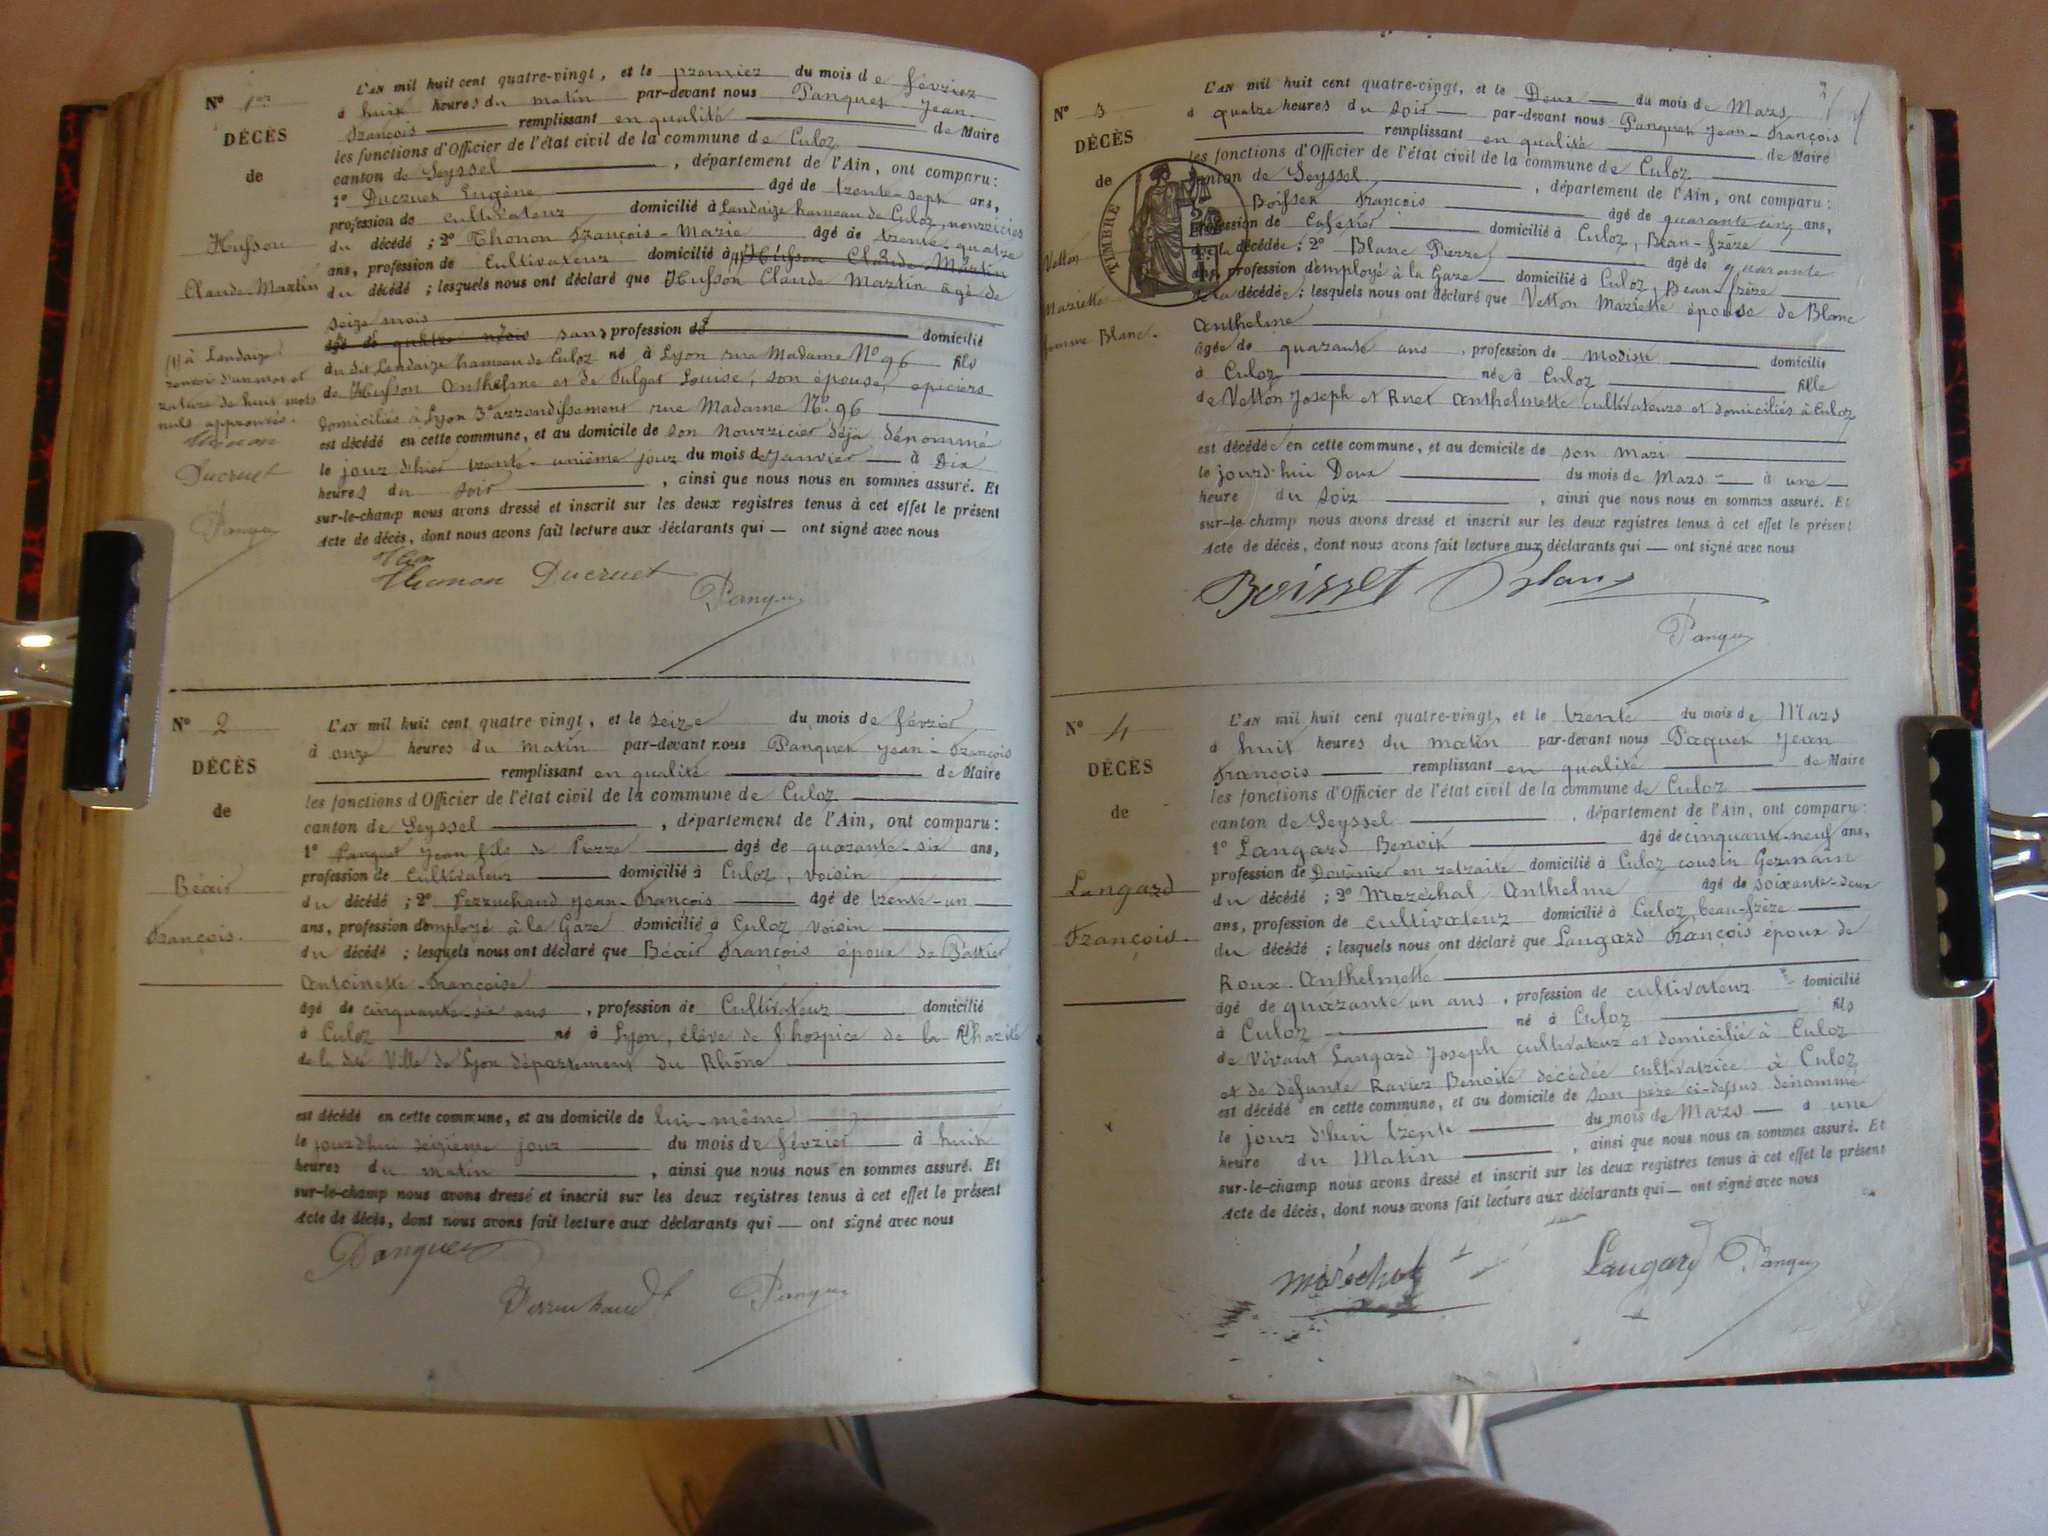 N° 1er
DÉCÈS
de
Husson
Claude-Martin
(1) à Landaize
renvoi d'un mot et
rature de huit mots
nuls approuvés.
Thonon
Ducruet
L'AN mil huit cent quatre-vingt, et le premier du mois de février
à huit heures du matin par-devant nous Panquet Jean-
François remplissant en qualité de Maire
les fonctions d'Officier de l'état civil de la commune de Culoz
canton de Seyssel, département de l'Ain, ont comparu:
1° Ducruet Eugène âgé de trente-sept ans,
profession de cultivateur domicilié à Landaize hameau de Culoz, nourricier
du décédé; 2° Thonon François-Marie âgé de trente-quatre
ans, profession de cultivateur domicilié à (1) Husson Claude Martin
du décédé; lesquels nous ont déclaré que Husson Claude Martin âgé de
seize mois
âgé de quatre mois sans profession de domicilié
au dit Landaize hameau de Culoz né à Lyon rue Madame N° 96 fils
de Husson Anthelme et de Fulgat Louise, son épouse, épiciers
domiciliés à Lyon 3e arrondissement rue Madame N° 96
est décédé en cette commune, et au domicile de son nourricier déjà dénommé
le jour d'hier trente-unième jour du mois de janvier à dix
heures du soir, ainsi que nous nous en sommes assuré. Et
sur-le-champ nous avons dressé et inscrit sur les deux registres tenus à cet effet le présent
Acte de décès, dont nous avons fait lecture aux déclarants qui — ont signé avec nous
Thonon Ducruet Panquet
N° 2
DÉCÈS
de
Béair
François.
L'AN mil huit cent quatre vingt, et le seize du mois de février
à onze heures du matin par-devant nous Panquet Jean-François
remplissant en qualité de Maire
les fonctions d'Officier de l'état civil de la commune de Culoz
canton de Seyssel, département de l'Ain, ont comparu:
1° Panquet Jean fils de Pierre âgé de quarante-six ans,
profession de cultivateur domicilié à Culoz, voisin
du décédé; 2° Perruchaud Jean-François âgé de trente-un
ans, profession d'employé à la Gare domicilié à Culoz voisin
du décédé; lesquels nous ont déclaré que Béair François époux de
Antoinette-Françoise
âgé de cinquante-six ans, profession de Cultivateur domicilié
à Culoz né à Lyon, élève de l'hospice de la Charité
de la dite Ville de Lyon département du Rhône
est décédé en cette commune, et au domicile de lui-même
le jourd'hui seizième jour du mois de février à huit
heures du matin, ainsi que nous nous en sommes assuré. Et
sur-le-champ nous avons dressé et inscrit sur les deux registres tenus à cet effet le présent
Acte de décès, dont nous avons fait lecture aux déclarants qui — ont signé avec nous
Panquet
Perruchaud Panquet
N° 3
DÉCÈS
de
TIMBRE
Vetton
Mariette
femme Blanc.
L'AN mil huit cent quatre-vingt, et le Deux du mois de Mars
à quatre heures du soir par-devant nous Panquet Jean-François
remplissant en qualité de Maire
les fonctions d'Officier de l'état civil de la commune de Culoz
canton de Seyssel, département de l'Ain, ont comparu:
Boisset François âgé de quarante cinq ans,
profession de Cafetier domicilié à Culoz, Beau-frère
de la décédée; 2° Blanc Pierre âgé de quarante
ans, profession d'employé à la Gare domicilié à Culoz, Beau-frère
de la décédée; lesquels nous ont déclaré que Vetton Mariette épouse de Blanc
Anthelme
âgée de quarante ans, profession de modiste domicilié
à Culoz née à Culoz fille
de Vetton Joseph et Ruet Anthelmette cultivateurs et domiciliés à Culoz
est décédée en cette commune, et au domicile de son mari
le jourd'hui Deux du mois de Mars à une
heure du soir, ainsi que nous nous en sommes assuré. Et
sur-le-champ nous avons dressé et inscrit sur les deux registres tenus à cet effet le présent
Acte de décès, dont nous avons fait lecture aux déclarants qui — ont signé avec nous
Boisset Blanc
Panquet
N° 4
DÉCÈS
de
Langard
François.
L'AN mil huit cent quatre-vingt, et le trente du mois de Mars
à huit heures du matin par-devant nous Paquet Jean
François remplissant en qualité de Maire
les fonctions d'Officier de l'état civil de la commune de Culoz
canton de Seyssel, département de l'Ain, ont comparu:
1° Langard Benoit âgé de cinquante-neuf ans,
profession de Douanier en retraite domicilié à Culoz cousin Germain
du décédé; 2° Maréchal Anthelme âgé de soixante-deux
ans, profession de cultivateur domicilié à Culoz beau-frère
du décédé; lesquels nous ont déclaré que Langard François époux de
Roux Anthelmette
âgé de quarante un ans, profession de cultivateur domicilié
à Culoz né à Culoz fils
de vivant Langard Joseph cultivateur et domicilié à Culoz
et de défunte Ravier Benoite décédée cultivatrice à Culoz
est décédé en cette commune, et au domicile de son père ci-dessus dénommé
le jour d'hui trente du mois de Mars à une
heure du Matin, ainsi que nous nous en sommes assuré. Et
sur-le-champ nous avons dressé et inscrit sur les deux registres tenus à cet effet le présent
Acte de décès, dont nous avons fait lecture aux déclarants qui — ont signé avec nous
maréchal Langard Panquet